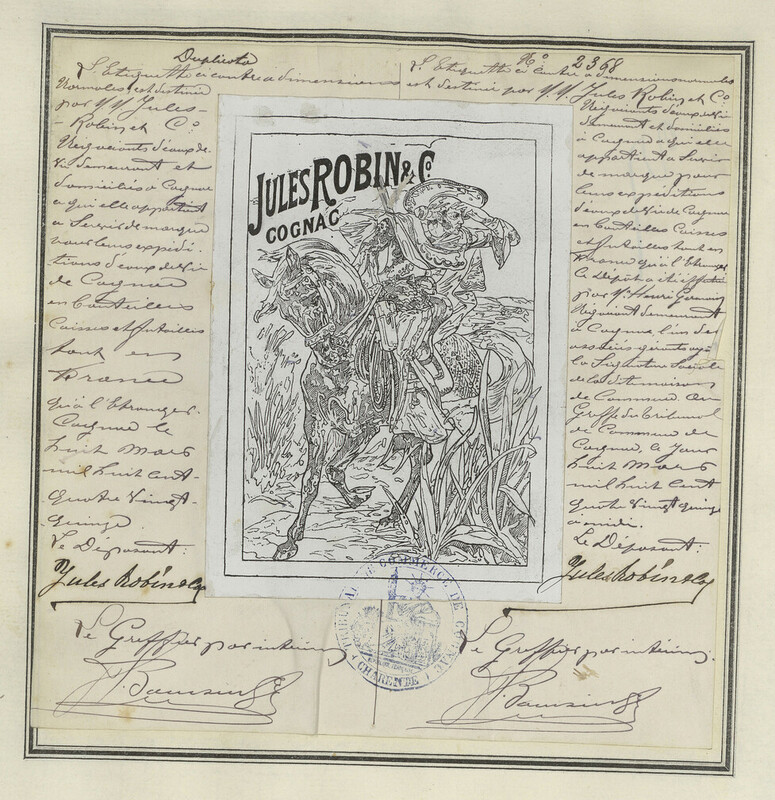 Duplicata
L'Etiquette ci contre a dimensions
Normales, est destinée
par M.M. Jules
Robin et Co
Négociants d'eaux-de-
vie demeurant et
domiciliés à Cognac
à qui elle appartient
à Servir de marque
pour leurs expédi-
tions d'eaux de Vie
de Cognac
en Bouteilles
Caisses et futailles
tant en
France
qu'à l'Etranger.
Cognac le
huit Mars
mil huit cent
quatre Vingt
quinze
Le Déposant:
Jules Robin & Co
Le Greffier par intérim
JULES ROBIN & Co
COGNAC
No 2368
L'Etiquette ci contre à dimensions normales
est destinée par M.M. Jules Robin et Co
Négociants d'eaux de Vie
demeurant et domiciliés
à Cognac à qui elle
appartient à Servir
de marque pour
leurs expéditions
d'eaux de Vie de Cognac
en Bouteilles Caisses
et futailles tant en
France qu'à l'Etranger
Le Dépôt a été effectué
par Mr Henri
Négociant demeurant
à Cognac, l'un des
associés gérants ayt
la Signature Sociale
de la dite maison
de Commerce Au
Greffe du Tribunal
de Commerce de
Cognac, le jour
huit Mars
mil huit cent
quatre Vingt quinze
à midi.
Le Déposant:
Jules Robin & Co
Le Greffier par intérim.
TRIBUNAL DE COMMERCE DE COGNAC
CHARENTE